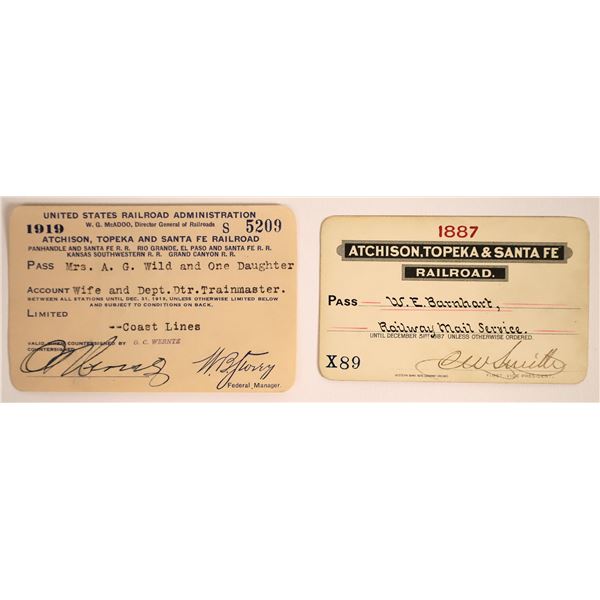 UNITED STATES RAILROAD ADMINISTRATION
W. G. McADOO, Director General of Railroads
1919 S 5209
ATCHISON, TOPEKA AND SANTA FE RAILROAD
PANHANDLE AND SANTA FE R. R. RIO GRANDE, EL PASO AND SANTA FE R. R.
KANSAS SOUTHWESTERN R. R. GRAND CANYON R. R.
PASS Mrs. A. G. Wild and One Daughter
ACCOUNT Wife and Dept.Dtr.Trainmaster.
BETWEEN ALL STATIONS UNTIL DEC. 31, 1919, UNLESS OTHERWISE LIMITED BELOW
AND SUBJECT TO CONDITIONS ON BACK.
LIMITED
--Coast Lines
VALID WHEN COUNTERSIGNED BY G. C. WERNTZ
COUNTERSIGNED
W.B. Storey
Federal Manager.
1887
ATCHISON, TOPEKA & SANTA FE
RAILROAD.
PASS W. E. Barnhart,
Railway Mail Service.
UNTIL DECEMBER 31ST 1887 UNLESS OTHERWISE ORDERED.
X89 C W Smith
FIRST VICE PRESIDENT.